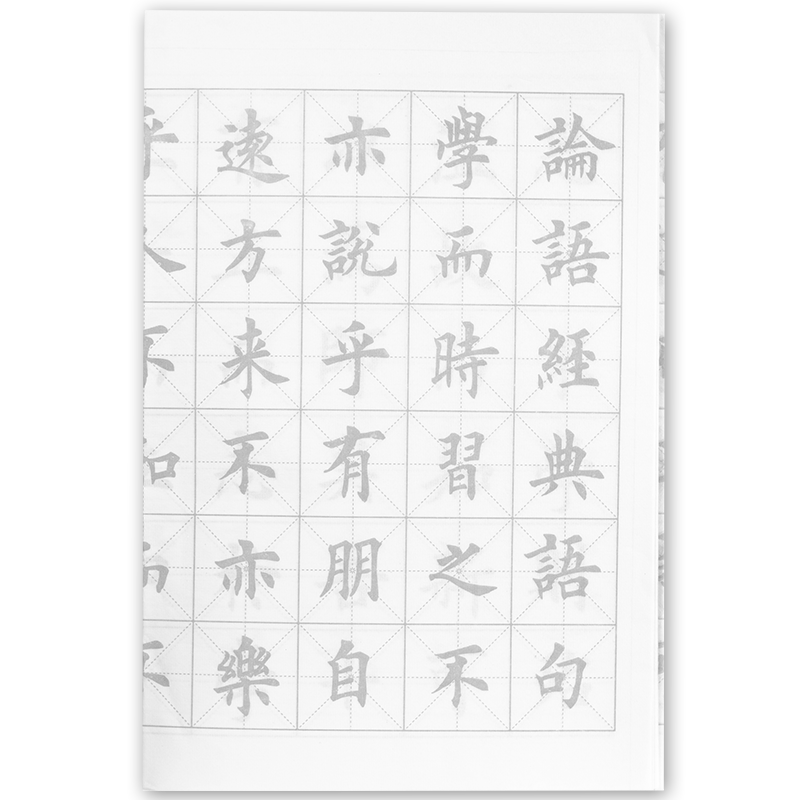 論語經典語句
學而時習之不
亦說乎有朋自
遠方来不亦樂
乎人不知而不